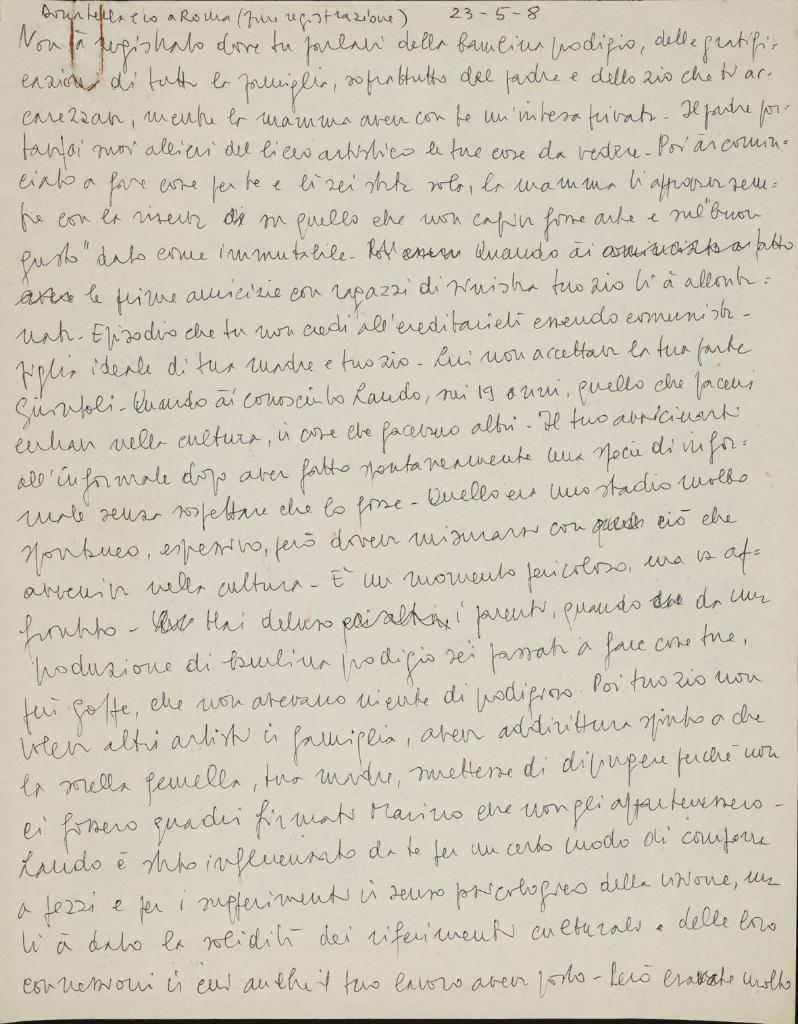 Donatella e io a Roma (fine registrazione) 23-5-8
Non à registrato dove tu parlavi della bambina prodigio, delle gratifi=
cazioni di tutta la famiglia, soprattutto del padre e dello zio che ti ac=
carezzava, mentre la mamma aveva con te un'intesa privata - Il padre por=
tava ai suoi allievi del liceo artistico le tue cose da vedere - Poi ài comin=
ciato a fare cose per te e lì sei stata sola, la mamma ti approvava sem=
pre con la riserva su quello che non capiva fosse arte e sul "buon
gusto" dato come immutabile - Quando ài cominciato a fatto
le prime amicizie con ragazzi di sinistra tuo zio ti à allonta=
nata - Episodio che tu non credi all'ereditarietà essendo comunista -
Figlia ideale di tua madre e tuo zio - Lui non accettava la tua parte
Giuntoli - Quando ài conosciuto Lando, sui 19 anni, quello che facevi
entrava nella cultura, in cose che facevano altri - Il tuo avvicinarti
all'informale dopo aver fatto spontaneamente una specie di infor=
male senza sospettare che lo fosse - Quello era uno stadio molto
spontaneo, espressivo, però doveva misurarsi con ciò che
avveniva nella cultura - È un momento pericoloso, ma va af=
frontato - Hai deluso i parenti, quando da una
produzione di bambina prodigio sei passata a fare cose tue,
più goffe, che non avevano niente di prodigioso. Poi tuo zio non
voleva altri artisti in famiglia, aveva addirittura spinto a che
la sorella gemella, tua madre, smettesse di dipingere perché non
ci fossero quadri firmati Marino che non gli appartenessero -
Lando è stato influenzato da te per un certo modo di comporre
a pezzi e per i suggerimenti in senso psicologico della visione, ma
ti à dato la solidità dei riferimenti culturali e delle loro
connessioni in cui anche il tuo lavoro aveva posto - Però eravate molto